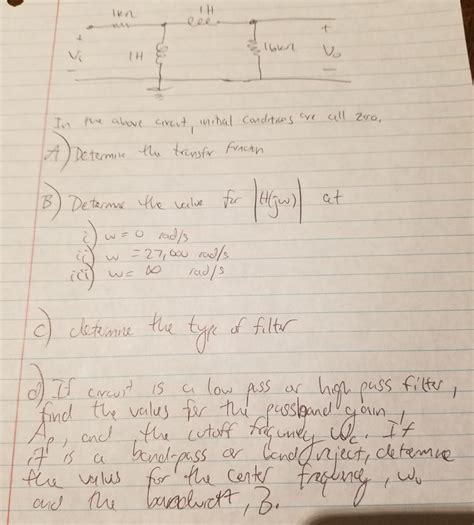 1kΩ 1H
+ +
Vi 1H 16kΩ Vo
- -
In the above circuit, initial conditions are all zero.
A) Determine the transfer
B) Determine the value for |H(jw)| at
i) w = 0 rad/s
ii) w = 27,000 rad/s
iii) w = ∞ rad/s
C) determine the type of filter
d) If circuit is a low pass or high pass filter,
find the values for the passband gain,
Ap, and the cutoff frequency Wc. If
it is a band-pass or band reject, determine
the values for the center frequency, wo
and the B.